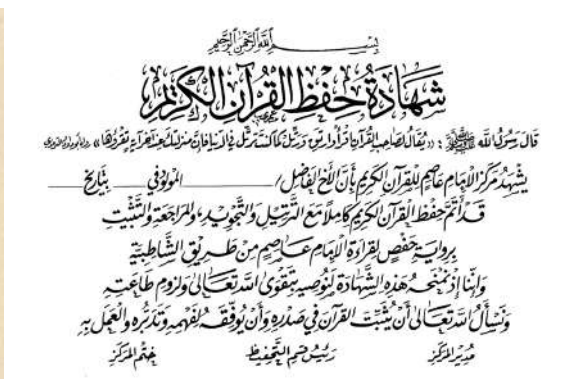 بِسْمِ اللَّهِ الرَّحْمَنِ الرَّحِيمِ
شَهَادَةُ حِفْظِ القُرْآنِ الكَرِيْمِ
قَالَ رَسُولُ اللَّه ﷺ : «يُقَالُ لِصَاحِبِ القُرْآنِ اقْرَأْ وَارْتَقِ وَرَتِّلْ كَمَا كُنْتَ تُرَتِّلُ فِي الدُّنْيَا فَإِنَّ مَنْزِلَتَكَ عِنْدَ آخِرِ آيَةٍ تَقْرَؤُهَا» رواه أبو داود والترمذي
يَشْهَدُ مَرْكَزُ الإِمَامِ عَاصِمٍ لِلقُرْآنِ الكَرِيمِ بِأَنَّ الأَخَ الفَاضِلَ / المَوْلُودَ فِي بِتَارِيخِ
قَدْ أَتَمَّ حِفْظَ القُرْآنِ الكَرِيمِ كَامِلاً مَعَ التَّرْتِيلِ وَالتَّجْوِيدِ، وَالمُرَاجَعَةِ وَالتَّثْبِيتِ
بِرِوَايَةِ حَفْصٍ لِقِرَاءَةِ الإِمَامِ عَاصِمٍ مِنْ طَرِيقِ الشَّاطِبِيَّةِ
وَإِنَّنَا إِذْ نَمْنَحُهُ هَذِهِ الشَّهَادَةَ لَنُوصِيهِ بِتَقْوَى اللَّهِ تَعَالَى وَلُزُومِ طَاعَتِهِ
وَنَسْأَلُ اللَّهَ تَعَالَى أَنْ يُثَبِّتَ القُرْآنَ فِي صَدْرِهِ وَأَنْ يُوَفِّقَهُ لِفَهْمِهِ وَتَدَبُّرِهِ وَالعَمَلِ بِهِ
مُدِيرُ المَرْكَزِ رَئِيسُ قِسْمِ التَّحْفِيظِ خَتْمُ المَرْكَزِ